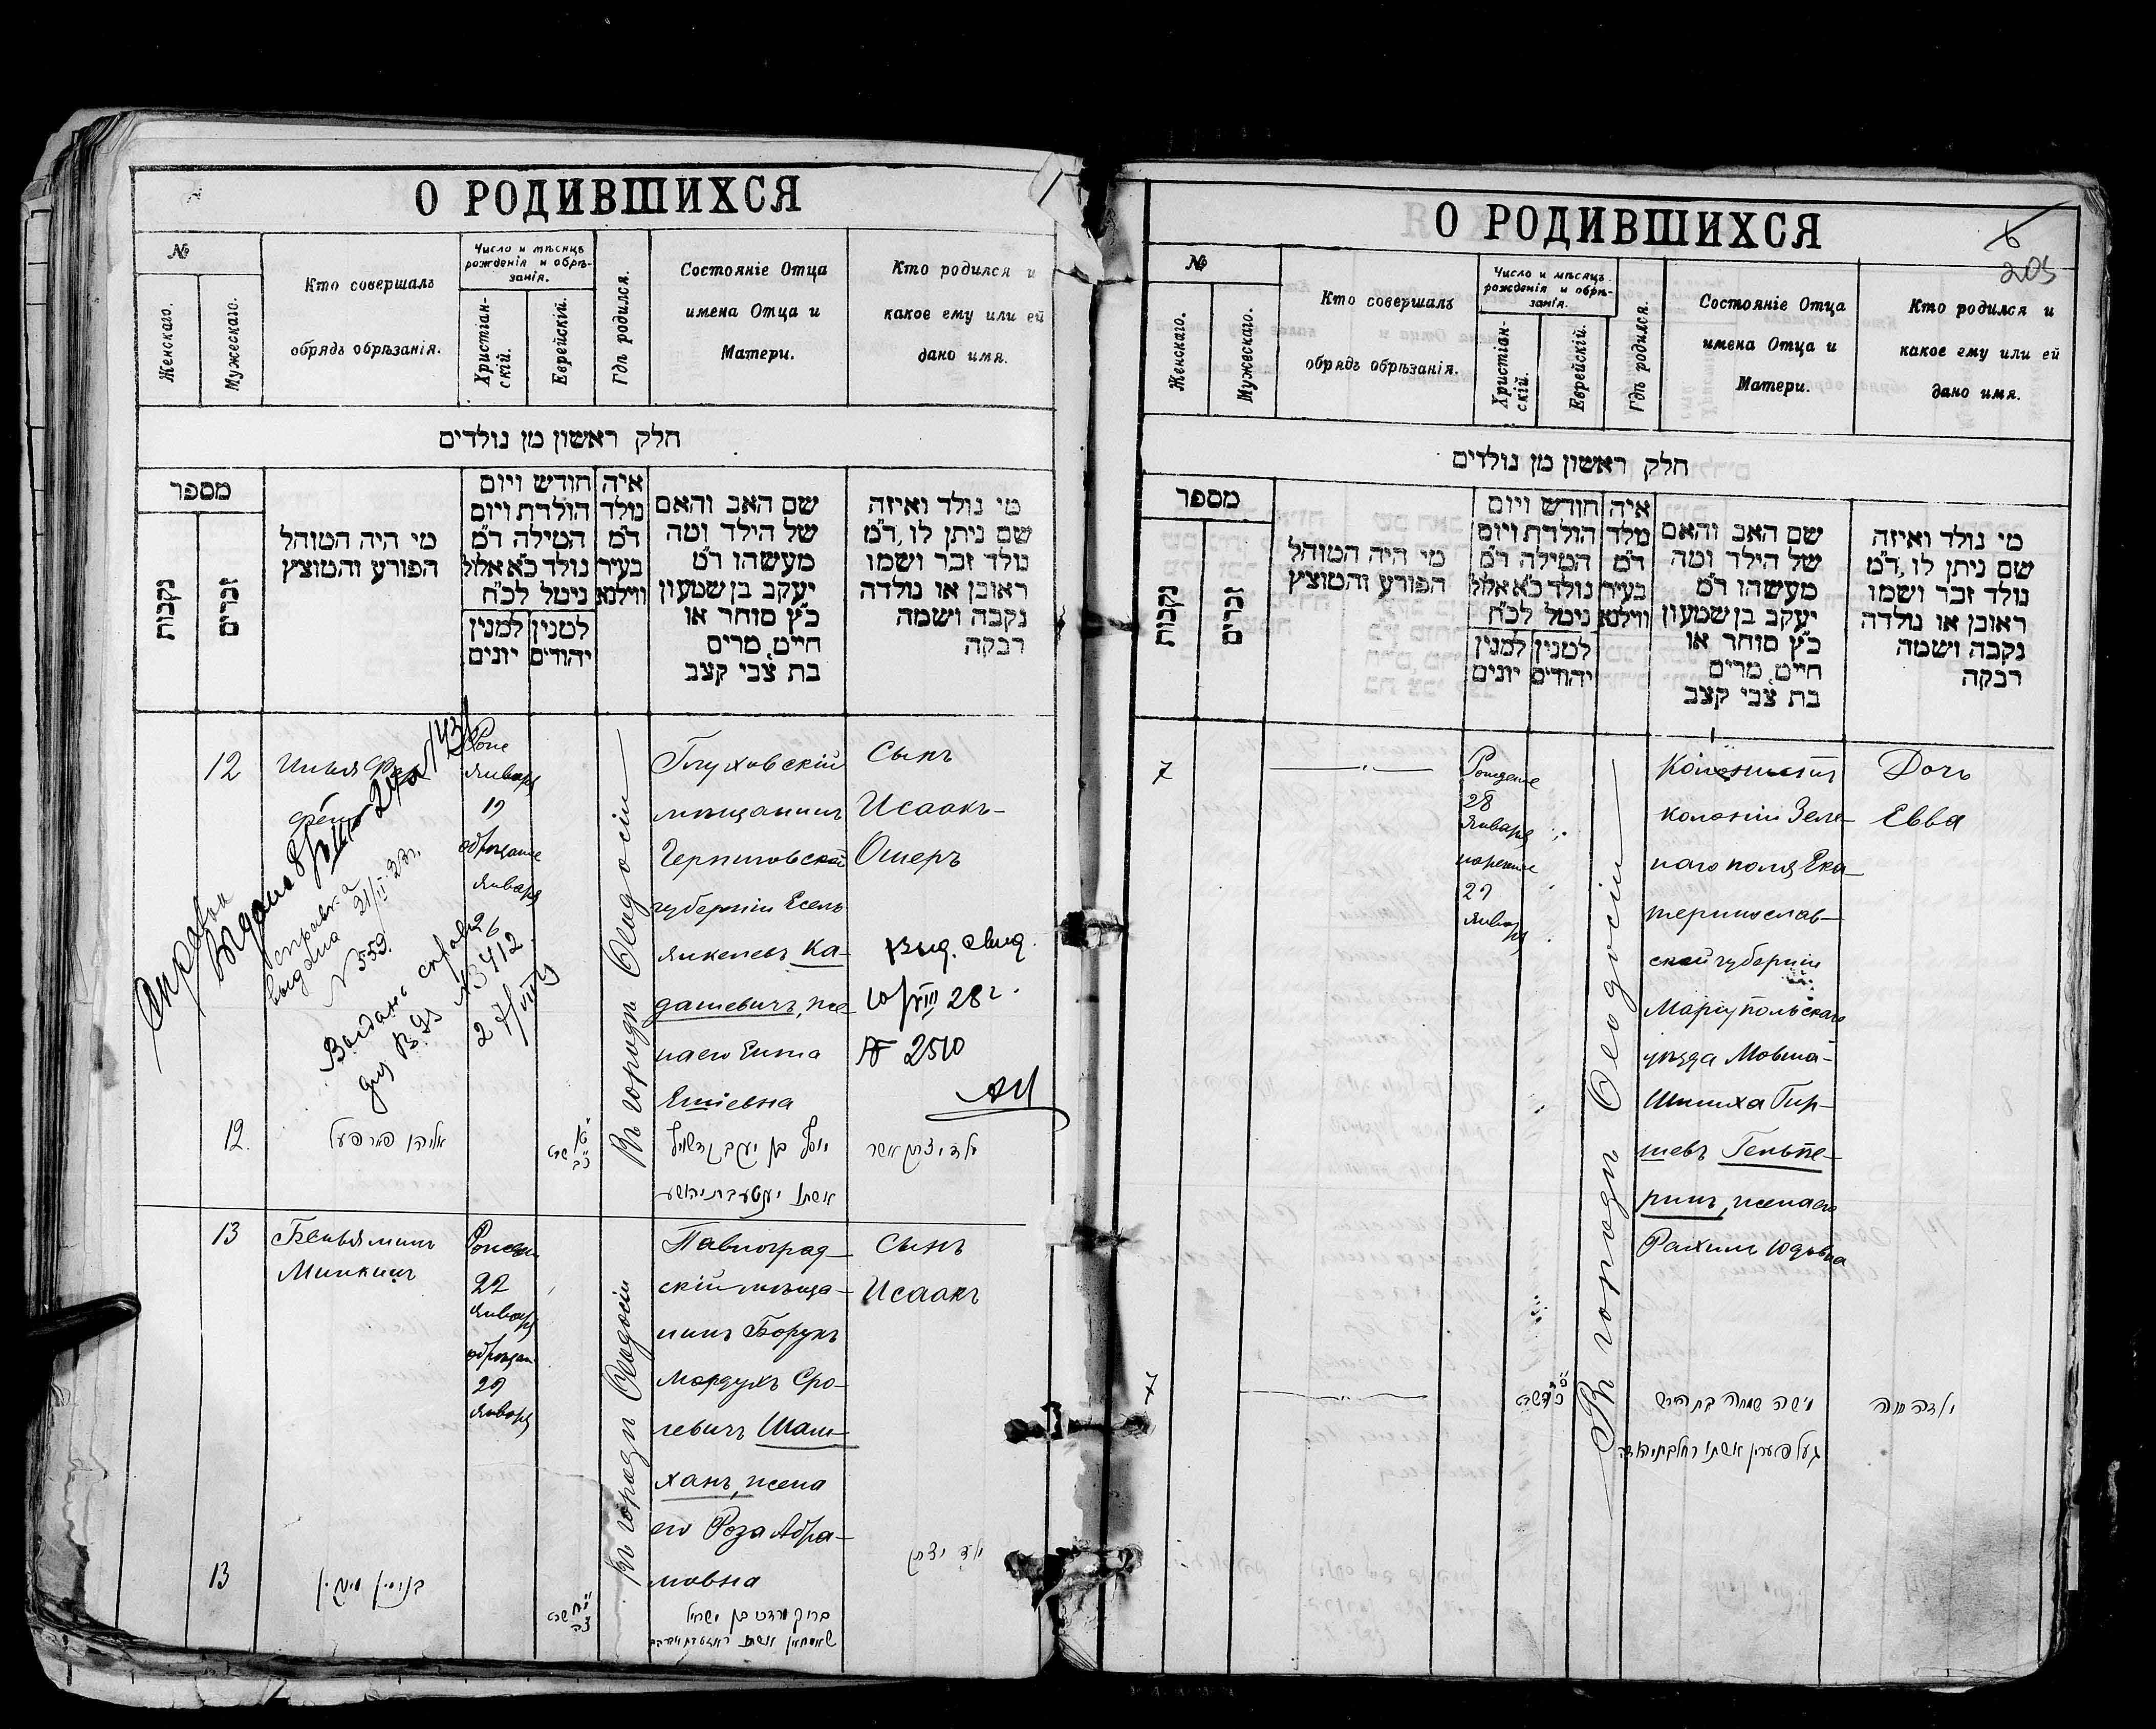 О РОДИВШИХСЯ
№
Женскаго.
Мужескаго.
Кто совершалъ
обрядъ обрѣзанія.
Число и мѣсяцъ
рожденія и обрѣ-
занія.
Христіан-
скій.
Еврейскій.
Гдѣ родился.
Состояніе Отца
имена Отца и
Матери.
Кто родился и
какое ему или ей
дано имя.
חלק ראשון מן נולדים
מספר
נקבות
זכרים
מי היה המוהל
הפורע והמוצץ
חודש ויום
הולדת ויום
המילה ד״מ
נולד כ״א אלול
ניטל לכ״ח
למנין
יונים
למנין
יהודים
איה
נולד
ד״מ
בעיר
ווילנא
שם האב והאם
של הילד ומה
מעשהו ד״מ
יעקב בן שמעון
כ״ץ סוחר או
חייט, מרים
בת צבי קצב
מי נולד ואיזה
שם ניתן לו, ד״מ
נולד זכר ושמו
ראובן או נולדה
נקבה ושמה
רבקה
12
Января
19
Января
26
Въ городѣ Ѳеодосіи
Глуховскій
мѣщанинъ
Черниговской
губерніи Есель
Янкелевъ Ка-
дашевичъ, же-
на его Ента
Сынъ
Исаакъ-
Ошеръ
Выд. свид.
10/VIII 28 г.
№ 2510
справка
выдана 21/II 23 г.
N 559.
N 3412
12.
יוסף בן יעקב
ילד יצחק אשר
13
Беньяминъ
Минкинъ
22
Января
29
Января
Въ городѣ Ѳеодосіи
Павлоград-
скій мѣща-
нинъ Борухъ
Мордухъ Сро-
левичъ Шам-
ханъ, жена
его Роза Абра-
мовна
Сынъ
Исаакъ
13
בנימין מינקין
ברוך מרדכי בן ישראל
ילד יצחק
О РОДИВШИХСЯ
6
205
№
Женскаго.
Мужескаго.
Кто совершалъ
обрядъ обрѣзанія.
Число и мѣсяцъ
рожденія и обрѣ-
занія.
Христіан-
скій.
Еврейскій.
Гдѣ родился.
Состояніе Отца
имена Отца и
Матери.
Кто родился и
какое ему или ей
дано имя.
חלק ראשון מן נולדים
מספר
נקבות
זכרים
מי היה המוהל
הפורע והמוצץ
חודש ויום
הולדת ויום
המילה ד״מ
נולד כ״א אלול
ניטל לכ״ח
למנין
יונים
למנין
יהודים
איה
נולד
ד״מ
בעיר
ווילנא
שם האב והאם
של הילד ומה
מעשהו ד״מ
יעקב בן שמעון
כ״ץ סוחר או
חייט, מרים
בת צבי קצב
מי נולד ואיזה
שם ניתן לו, ד״מ
נולד זכר ושמו
ראובן או נולדה
נקבה ושמה
רבקה
7
28
Января
29
Января
Въ городѣ Ѳеодосіи
Колонистъ
колоніи Зеле-
наго поля Ека-
теринослав-
ской губерніи
Маріупольскаго
уѣзда Мовша-
Шимха Гир-
шевъ Гельпе-
ринъ, жена его
Рахиль Юдовна
Дочь
Евва
7
ילדה חוה